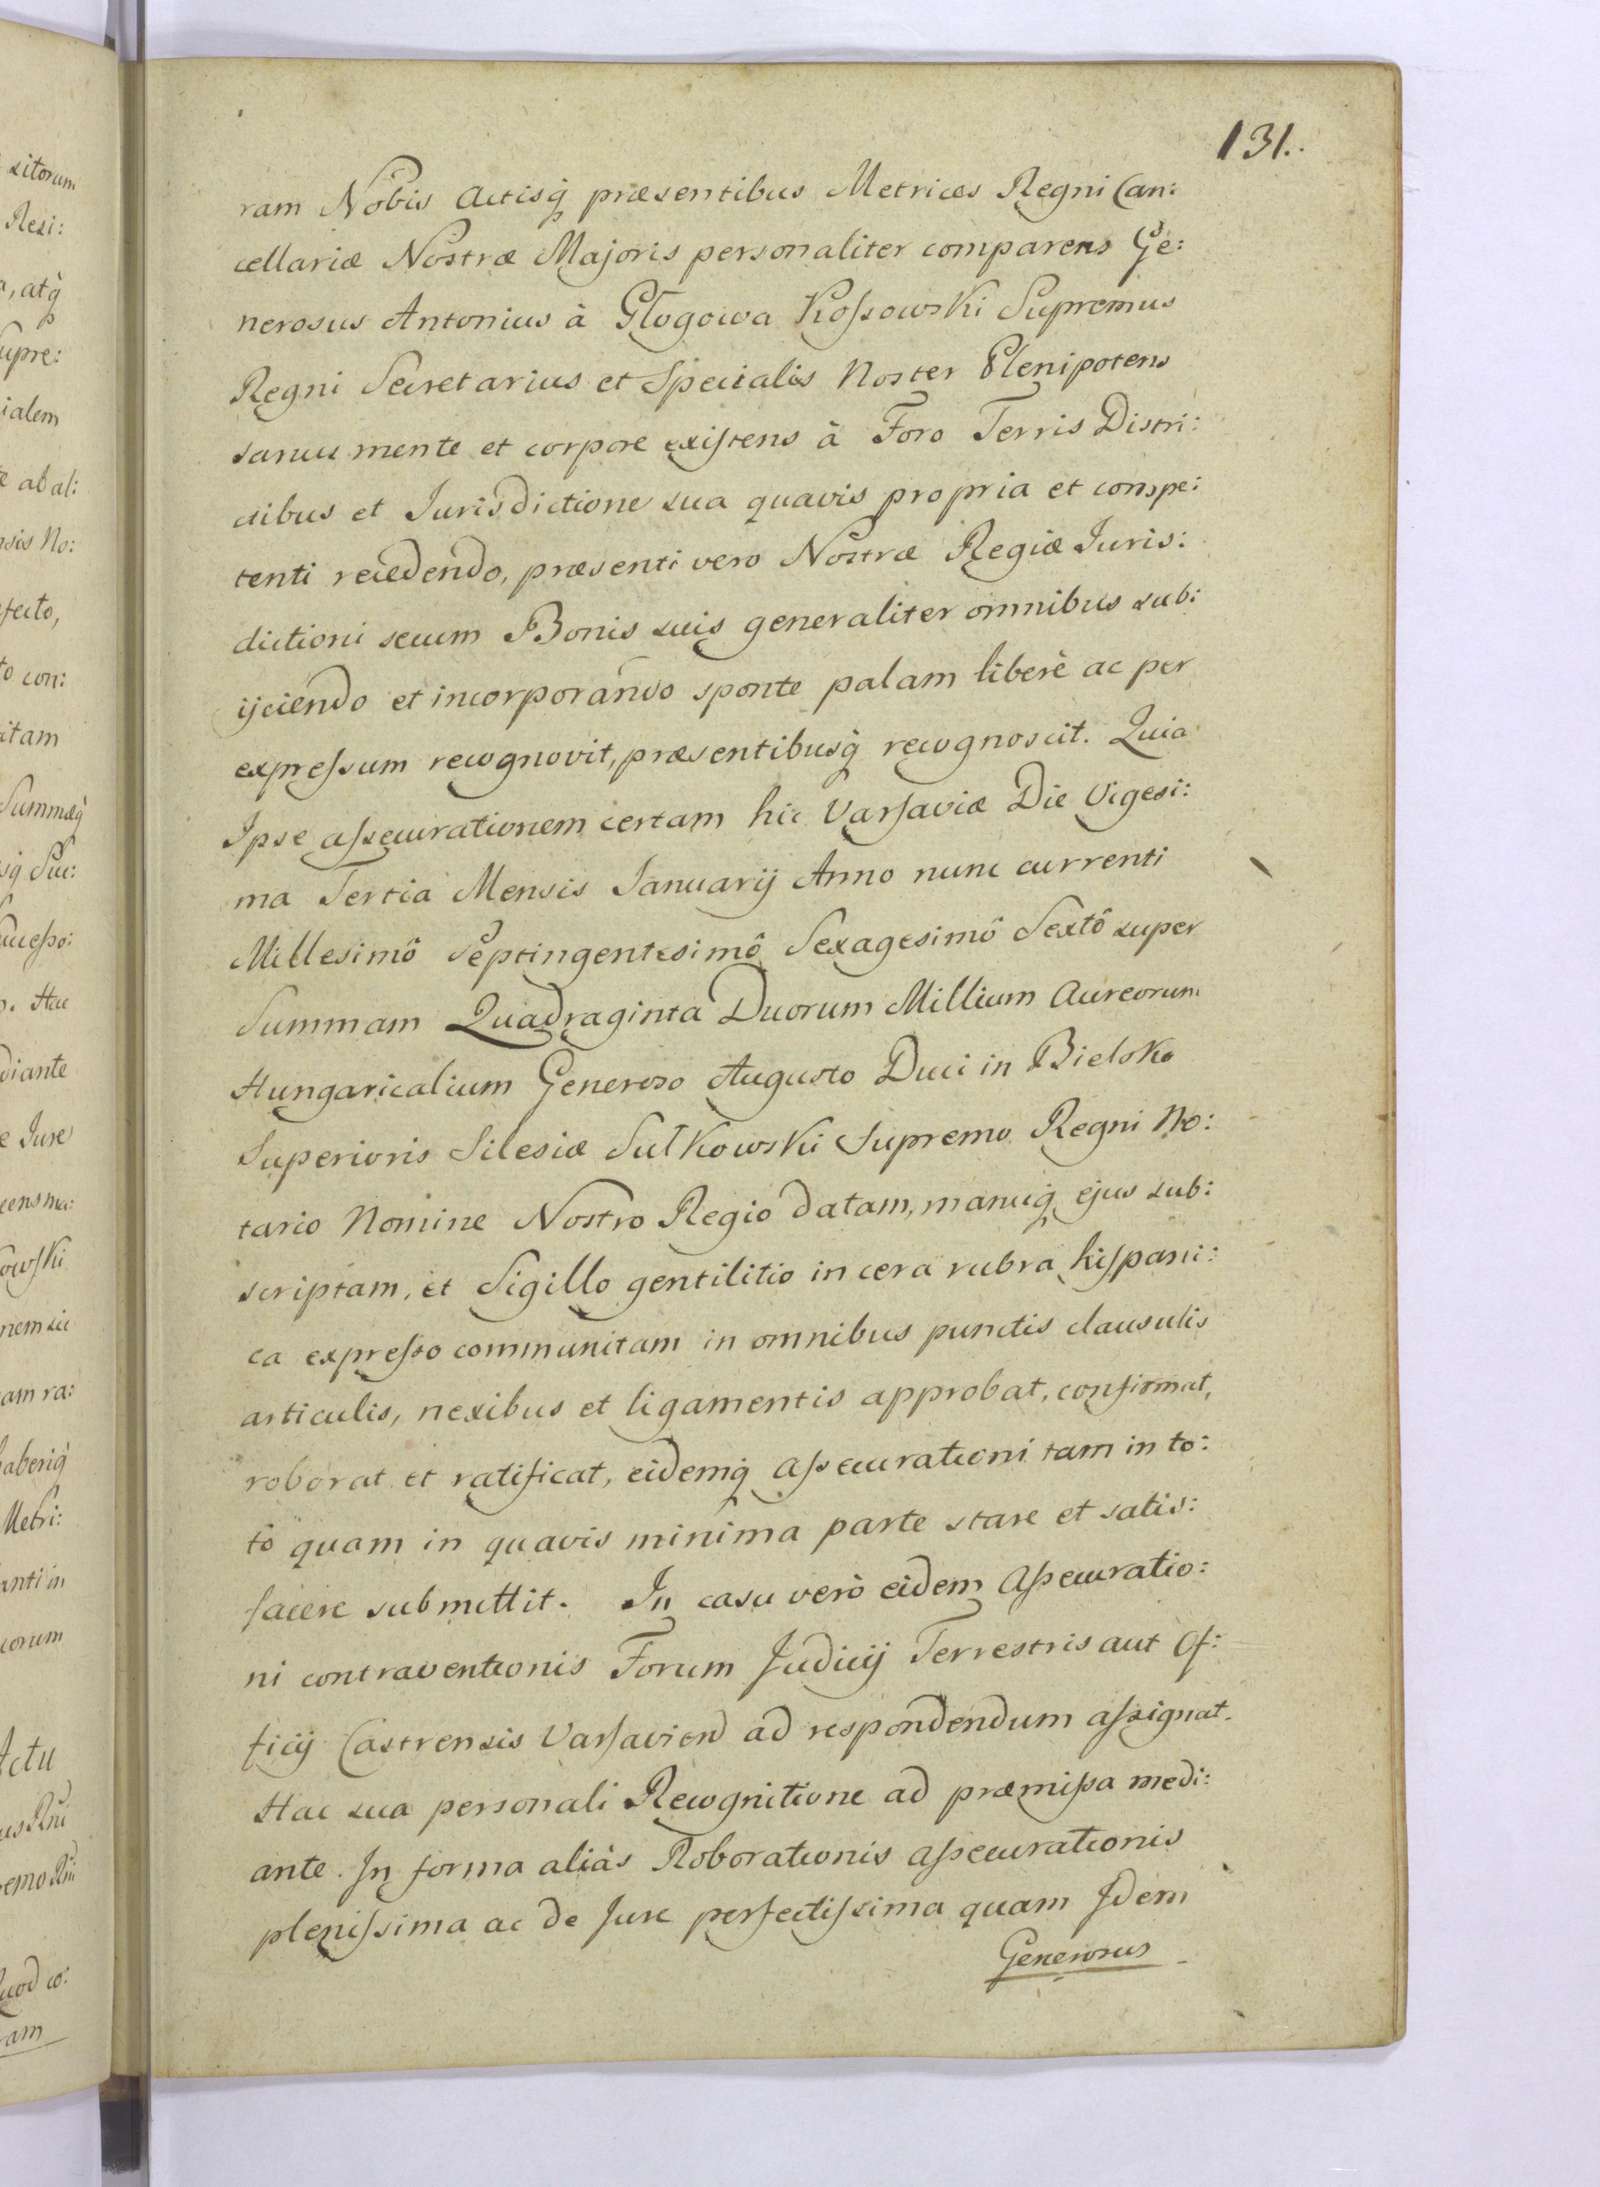 131.
ram Nobis Actisq̃ præsentibus Metrices Regni Can:
cellariæ Nostræ Majoris personaliter comparens Ge:
nerosus Antonius à Głogowa Kossowski Supremus
Regni Secretarius et Specialis Noster Plenipotens
sanus mente et corpore existens à Foro Terris Distri:
ctibus et Jurisdictione sua quavis propria et compe:
tenti recedendo, præsenti vero Nostræ Regiæ Juris:
dictioni secum Bonis suis generaliter omnibus sub:
ijciendo et incorporando sponte palam liberè ac per
expressum recognovit, præsentibusq̃ recognoscit. Quia
Ipse assecurationem certam hic Varsaviæ Die Vigesi:
ma Tertia Mensis Januarij Anno nunc currenti
Millesimô Septingentesimô Sexagesimô Sextô super
Summam Quadraginta Duorum Millium Aureorum
Hungaricalium Generoso Augusto Duci in Bielsko
Superioris Silesiæ Sułkowski Supremo Regni No:
tario Nomine Nostro Regio datam, manuq̃ ejus sub:
scriptam, et Sigillo gentilitio in cera rubra hispani:
ca expresso communitam in omnibus punctis clausulis
articulis, nexibus et ligamentis approbat, confirmat,
roborat et ratificat, eidemq̃ Assecurationi tam in to:
to quam in quavis minima parte stare et satis:
facere submittit. In casu verò eidem Assecuratio:
ni contraventionis Forum Judicij Terrestris aut Of:
ficij Castrensis Varsavien ad respondendum assignat.
Hac sua personali Recognitione ad præmissa medi:
ante. In forma aliàs Roborationis Assecurationis
plenissima ac de Jure perfectissima quam Idem
Generosus
sitorum
Resi:
a, atq̃
Supre:
ialem
te ab al:
nsis No:
fecto,
to con:
itam
Summæq̃
sq̃ Suc:
Successo:
Hac
diante
e Jure
cens ma:
owski
nem sci
am ra:
haberiq̃
Metri:
anti in
corum
Actu
Quod co:
ram